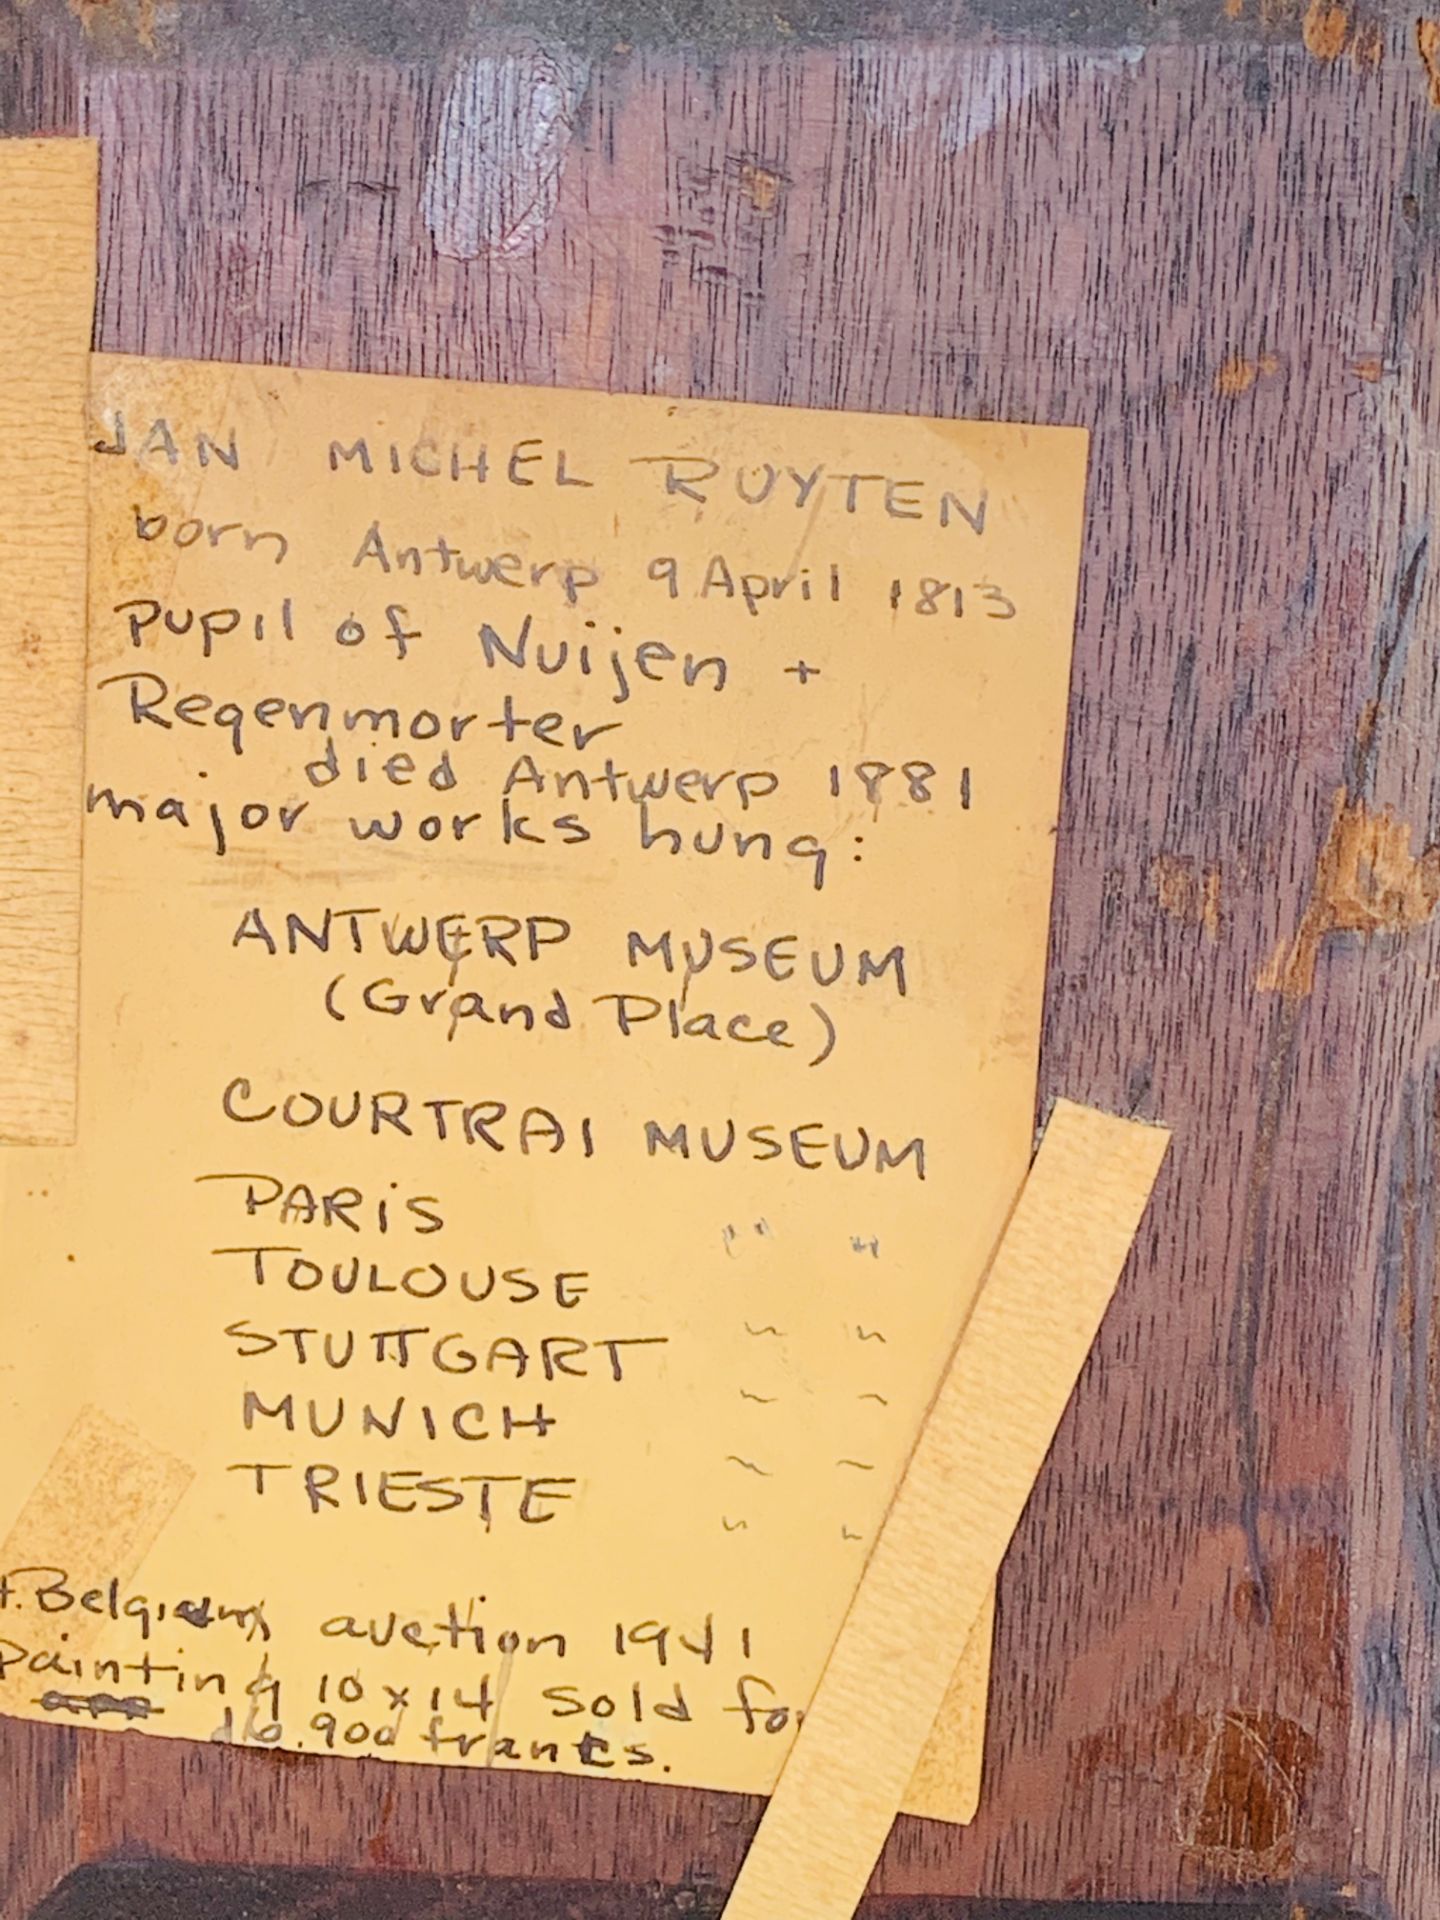 JAN MICHEL RUYTEN
born Antwerp 9 April 1813
Pupil of Nuijen +
Regenmorter
died Antwerp 1881
major works hung:
ANTWERP MUSEUM
(Grand Place)
COURTRAI MUSEUM
PARIS " "
TOULOUSE " "
STUTTGART " "
MUNICH " "
TRIESTE " "
Belgium auction 1941
painting 10 x 14 sold for
16.900 francs.